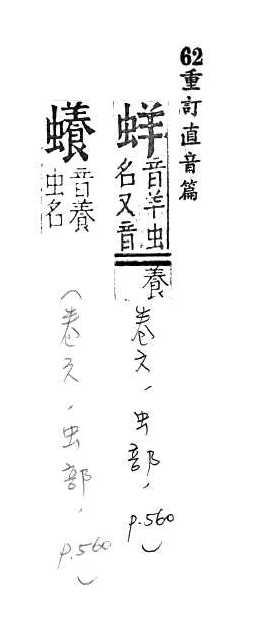 62重訂直音篇
蛘音羊虫名又音養
卷六,虫部,p.560)
蟻音養虫名
(卷六,虫部,p.560)